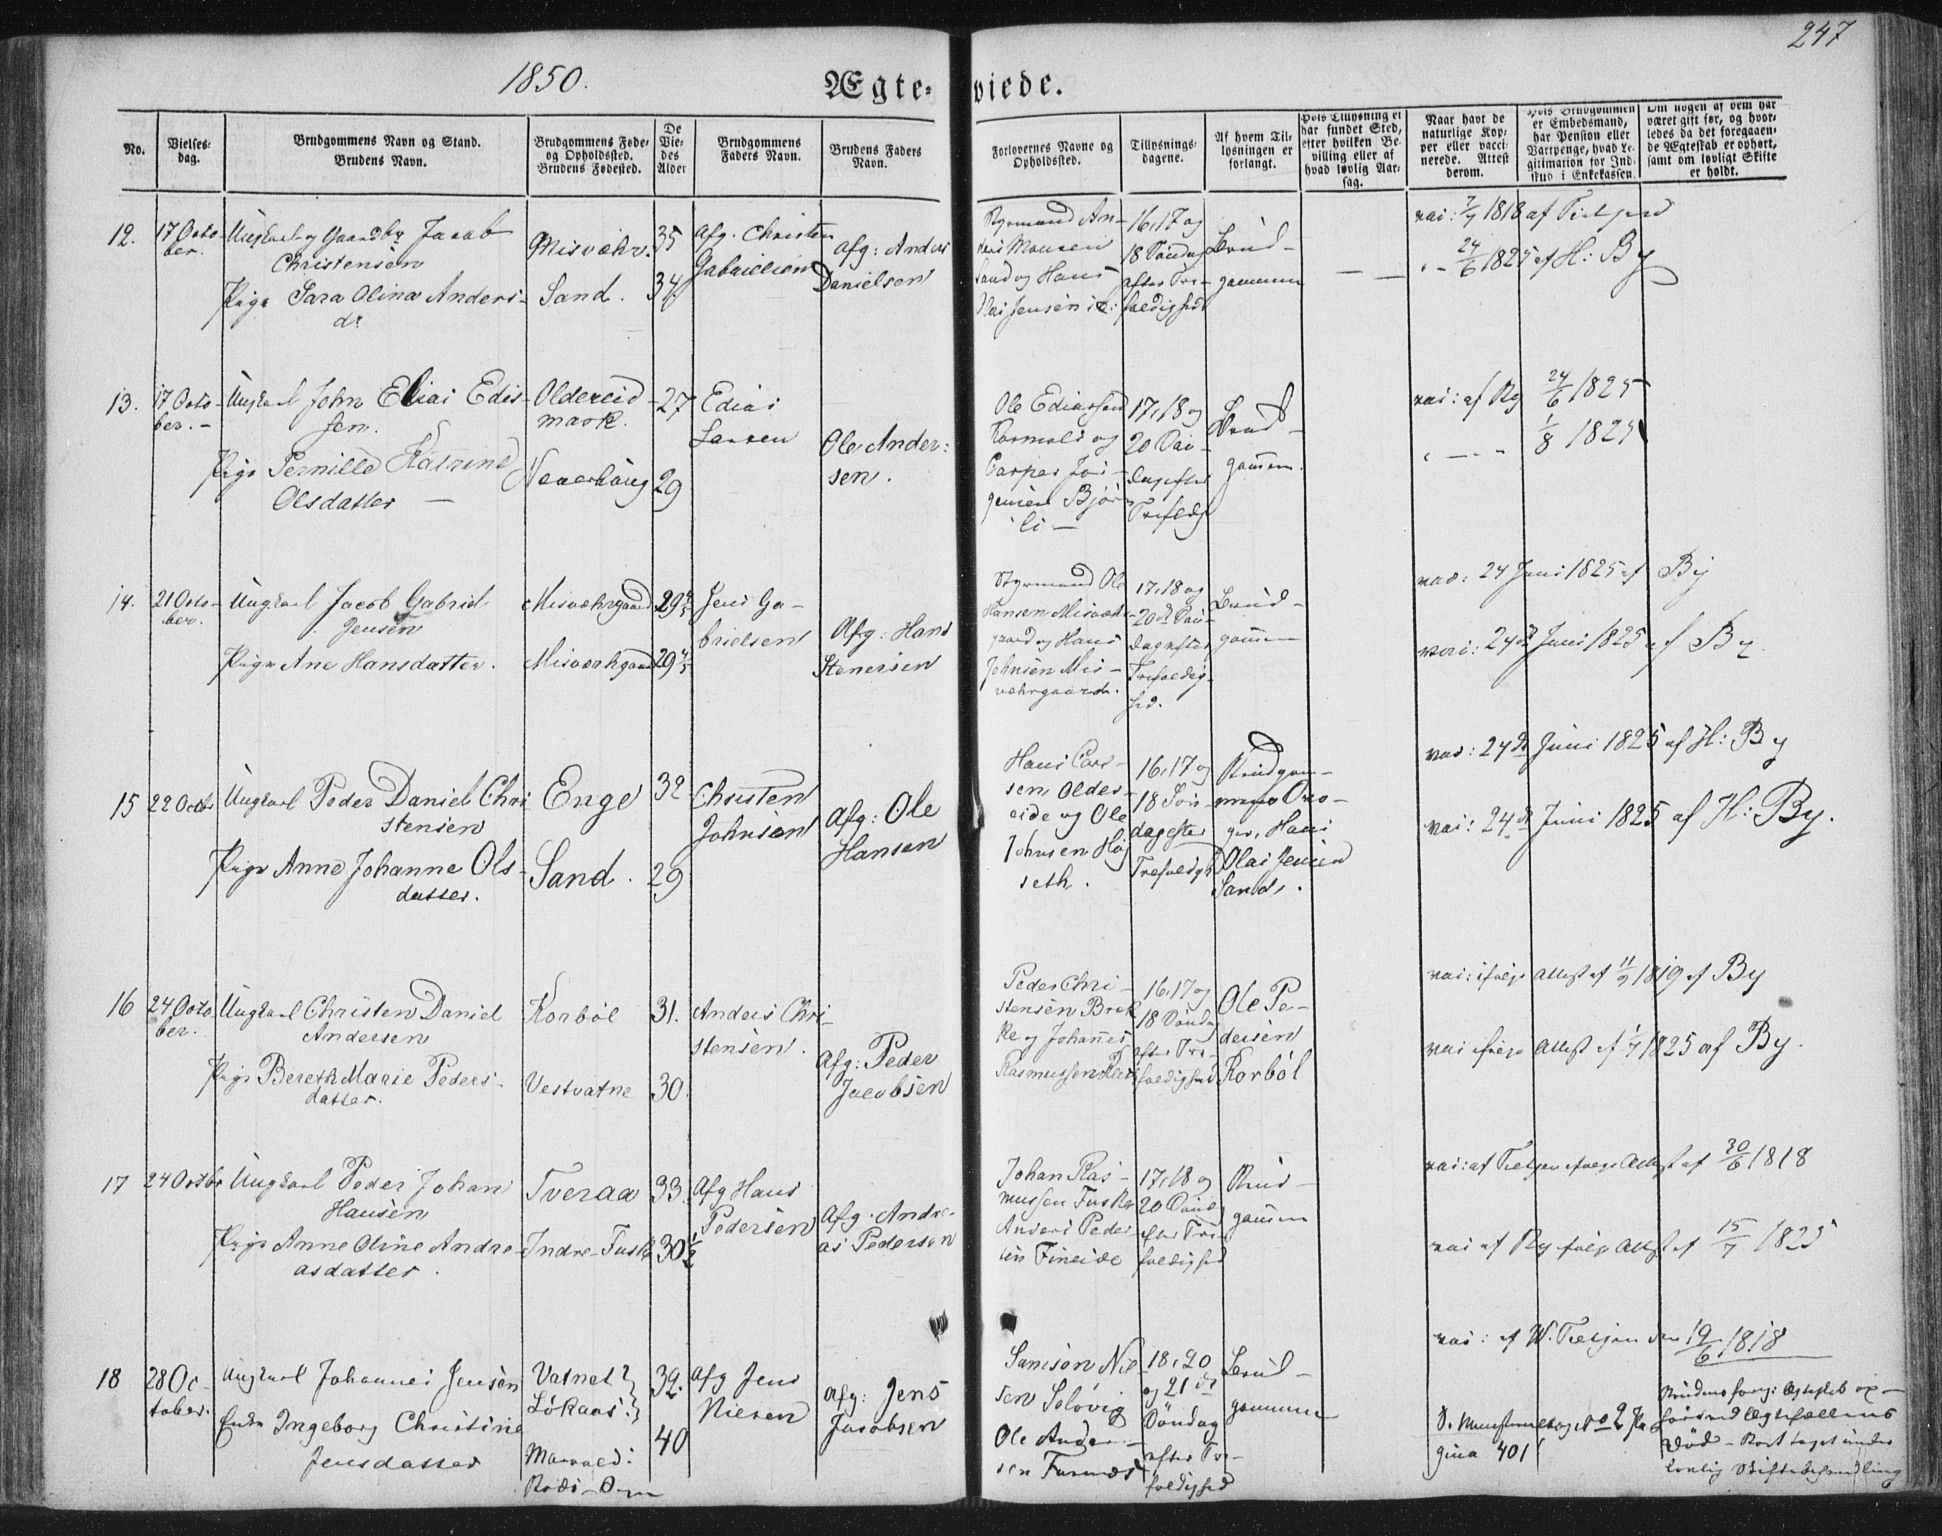 247
1850.
Ægte-viede.
No.
Vielses-
dag.
Brudgommens Navn og Stand.
Brudens Navn.
Brudgommens Føde-
og Opholdssted.
Brudens Fødested.
De
Vie-
des
Alder
Brudgommens
Faders Navn.
Brudens Faders
Navn.
Forlovernes Navne og
Opholdssted.
Tillysnings-
dagene.
Af hvem Til-
lysningen er
forlangt.
Hvis Tillysning ei
har fundet Sted,
efter hvilken Be-
villing eller af
hvad lovlig Aar-
sag.
Naar havt de
naturlige Kop-
per eller vacci-
nerede. Attest
derom.
Hvis Brudgommen
er Embedsmand,
har Pension eller
Vartpenge, hvad Le-
gitimation for Ind-
skud i Enkekassen.
Om nogen af dem har
været gift før, og hvor-
ledes da det foregaaen-
de Ægteskab er ophørt,
samt om lovligt Skifte
er holdt.
12.
17 Octo-
ber.
Ungkarl og Gaardbr Jacob
Christensen
Pige Sara Olina Anders-
dr
Misvæhr.
Sand.
35
34
Afg. Christen
Gabrielsen
Afg: Anders
Danielsen
Styrmand An-
ders Monsen
Sand og Hans
Jensen
16, 17 og
18 Søndag
efter Tre-
foldighed
Brud-
gommen
vac: 7/7 1818 af
24/6 1825 af H: By
13.
17 Octo-
ber. -
Ungkarl John Elias Edis-
sen.
Pige Pernille Katrine
Olsdatter -
Oldereid
mark.
Neverhaug
27
29
Edias
Larsen
Ole Ander-
sen.
Ole Ediassen
og
Casper Jør-
gensen Bjør
li -
17, 18 og
20 Søn-
dag efter
Trefoldg
Brud-
gommen.
vac: af By 24/6 1825
1/8 1825
14.
21 Octo-
ber.
Ungkarl Jacob Gabriel
Jensen
Pige Ane Hansdatter.
Misvæhrgaard
Misværhgaard
29 4/5
29 4/5
Jens Ga-
brielsen
Afg: Hans
Stenersen
Styrmand Ole
Hansen Misvæhr
gaard og Hans
Johnsen Mis-
væhrgaard.
17, 18 og
20de Søn-
dag efter
Trefoldig-
hed.
Brud-
gommen
vac: 24 Juni 1825 af By
vac: 24de Juni 1825 af By
15
22 Octr
Ungkarl Peder Daniel Chri
stensen
Pige Anne Johanne Ols-
datter.
Enge
Sand.
32
29
Christen
Johnsen
Afg: Ole
Hansen
Hans Carl-
sen Older-
eide og Ole
Johnsen Høg
seth.
16, 17 og
18 Søn-
dag efter
Trefoldgh
Brudgom-
mens
Hans
Olai Jensen
Sand.
vac: 24de Juni 1825 af H: By
vac: 24de Juni 1825 af H: By.
16
24 Octo
ber.
Ungkarl Christen Daniel
Andersen
Pige Bereth Marie Peders-
datter.
Korbøl
Vestvatne
31.
30.
Anders Chri-
stensen.
Afg: Peder
Jacobsen
Peder Chri-
stensen Brek
ke og Johannes
Rasmussen
16, 17 og
18 Søndag
efter Tre-
foldighed
Ole Pe-
dersen
Korbøl
vac: ifølge Attest af 11/9 1819 af By
vac ifølge Attest af 1/7 1825 af By.
17
24 Octbr
Ungkarl Peder Johan
Hansen
Pige Anne Oline Andre-
asdatter.
Tveraa
Indre-Fuske
33.
30 1/2
Afg Hans
Pedersen
Afg. Andre-
as Pedersen
Johan Ras-
mussen Fuske
Anders Peder
sen Fineide
17, 18 og
20 Sønd
efter Tre-
foldighed
Brud-
gommen
vac: af ifølge Attest af 30/6 1818
vac af By ifølge Attest af 15/7 1825
18
28 Oc-
tober.
Ungkarl Johannes Jensen
Enke Ingeborg Christine
Jensdatter
Vatnet
Løkaas.
39.
40
Afg Jens
Nielsen
Afg: Jens
Jacobsen
Samson Niel
sen Soløvig
Ole Ander-
sen Furnes
18, 20
og 21de
Søndag
efter Tre-
foldighed
Brud-
gommen
vac: af den 19/6 1818
No 2 Pa
gina 401
Brudens forrige Ægteskab op-
hørt ved Ægtefællens
Død -
lovlig Skiftebehandling